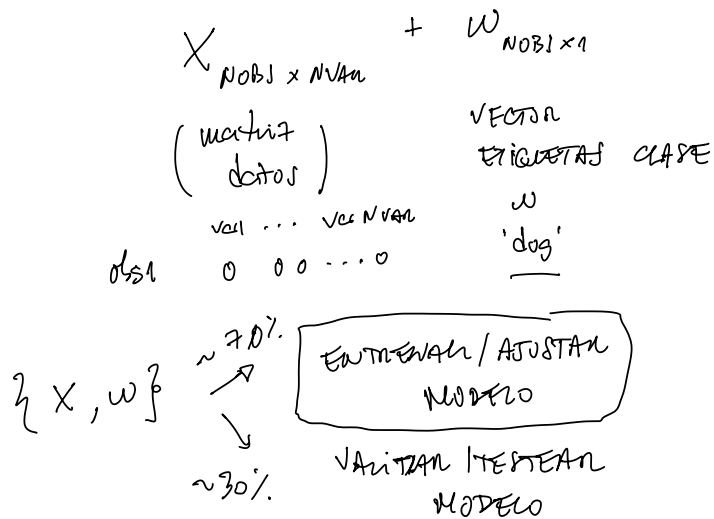 X NOBS x NVAR + W NOBS x 1
(matriz datos)
VECTOR
ETIQUETAS CLASE
var1 ... var NVAR
w
obs1 0 0 0 ... 0
'dog'
{X, w}
~70%
ENTRENAR / AJUSTAR
MODELO
~30%
VALIDAR / TESTEAR
MODELO